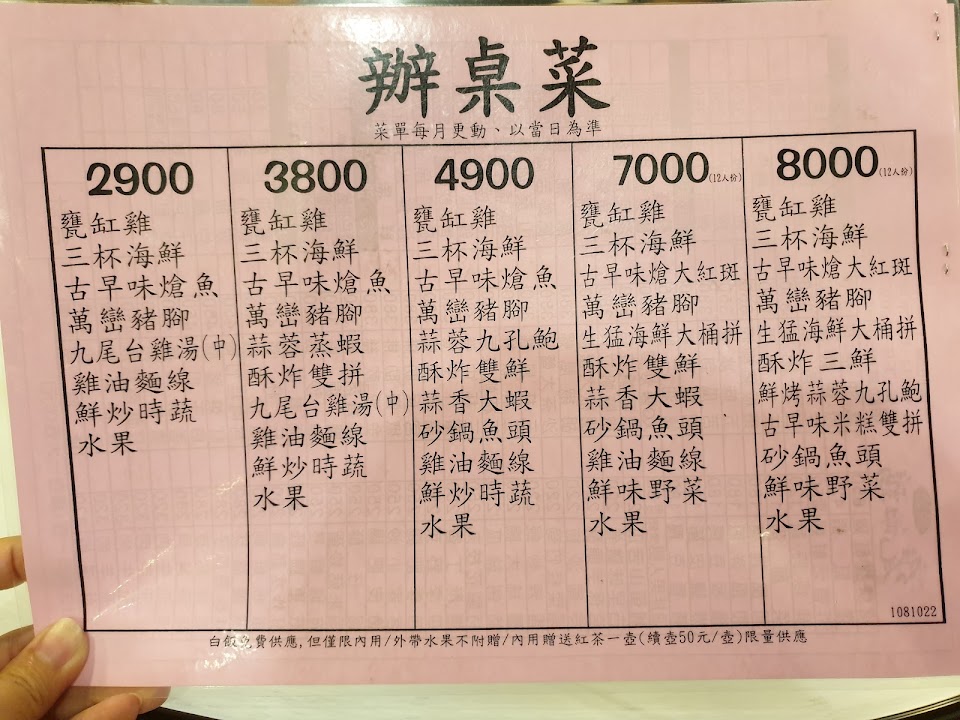 辦桌菜
菜單每月更動、以當日為準
2900
甕缸雞
三杯海鮮
古早味熗魚
萬巒豬腳
九尾台雞湯(中)
雞油麵線
鮮炒時蔬
水果
3800
甕缸雞
三杯海鮮
古早味熗魚
萬巒豬腳
蒜蓉蒸蝦
酥炸雙拼
九尾台雞湯(中)
雞油麵線
鮮炒時蔬
水果
4900
甕缸雞
三杯海鮮
古早味熗魚
萬巒豬腳
蒜蓉九孔鮑
酥炸雙鮮
蒜香大蝦
砂鍋魚頭
雞油麵線
鮮炒時蔬
水果
7000(12人份)
甕缸雞
三杯海鮮
古早味熗大紅斑
萬巒豬腳
生猛海鮮大桶拼
酥炸雙鮮
蒜香大蝦
砂鍋魚頭
雞油麵線
鮮味野菜
水果
8000(12人份)
甕缸雞
三杯海鮮
古早味熗大紅斑
萬巒豬腳
生猛海鮮大桶拼
酥炸三鮮
鮮烤蒜蓉九孔鮑
古早味米糕雙拼
砂鍋魚頭
鮮味野菜
水果
1081022
白飯免費供應,但僅限內用/外帶水果不附贈/內用贈送紅茶一壺(續壺50元/壺)限量供應